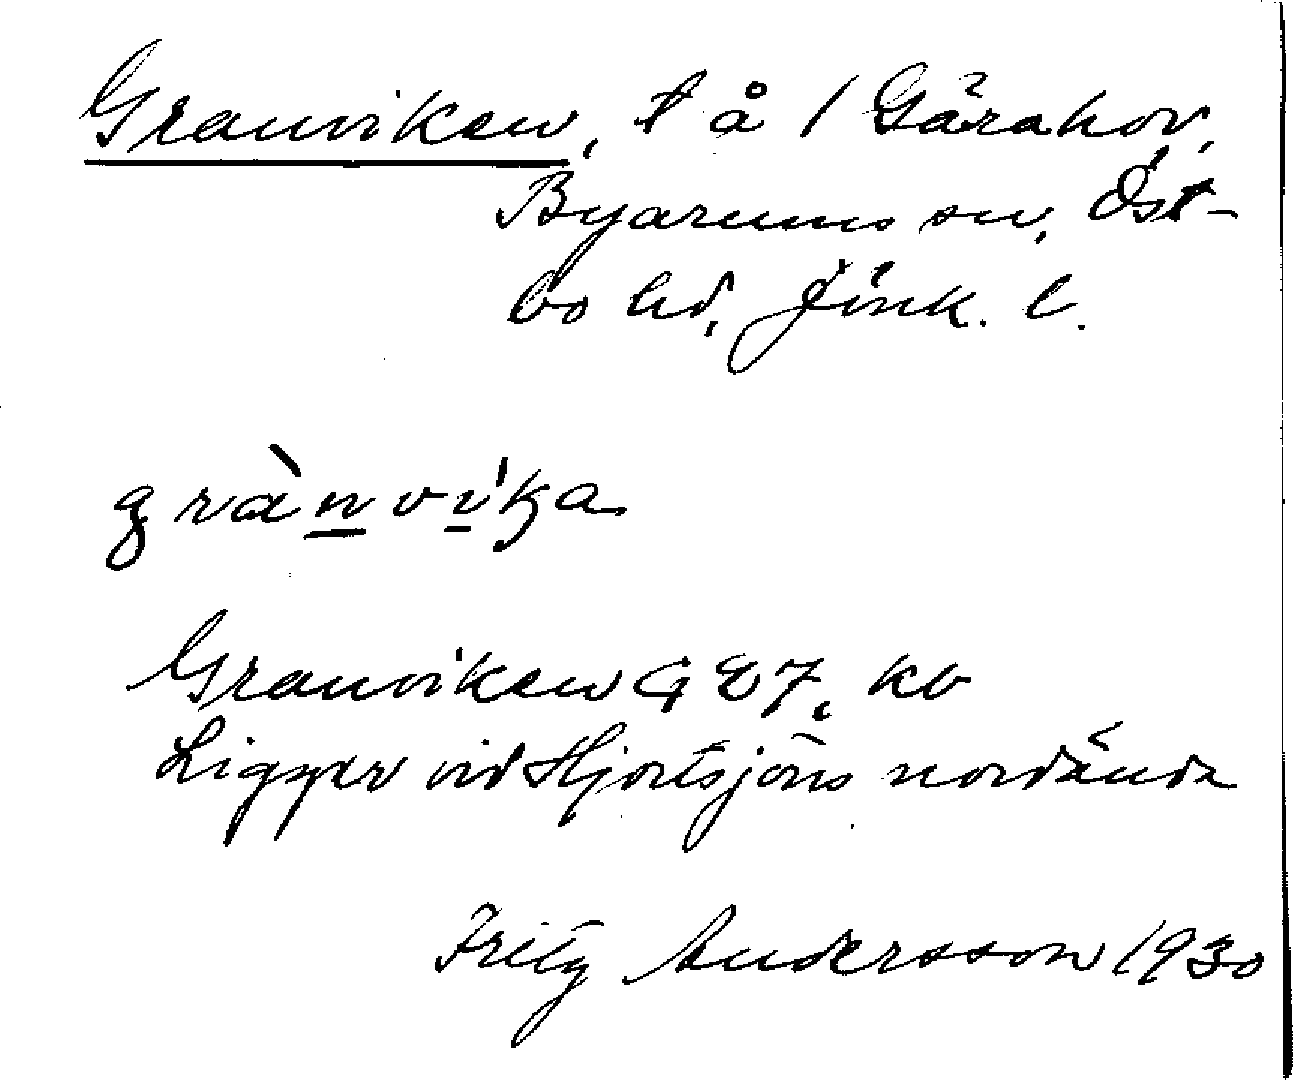 Granviken, t å 1 Gärahov,
Byarums sn, Öst-
bo hd, Jönk. l.
grànvíka
Granviken G E7, kb
Ligger vid Hjortsjöns nordända
Fritz Andersson 1930